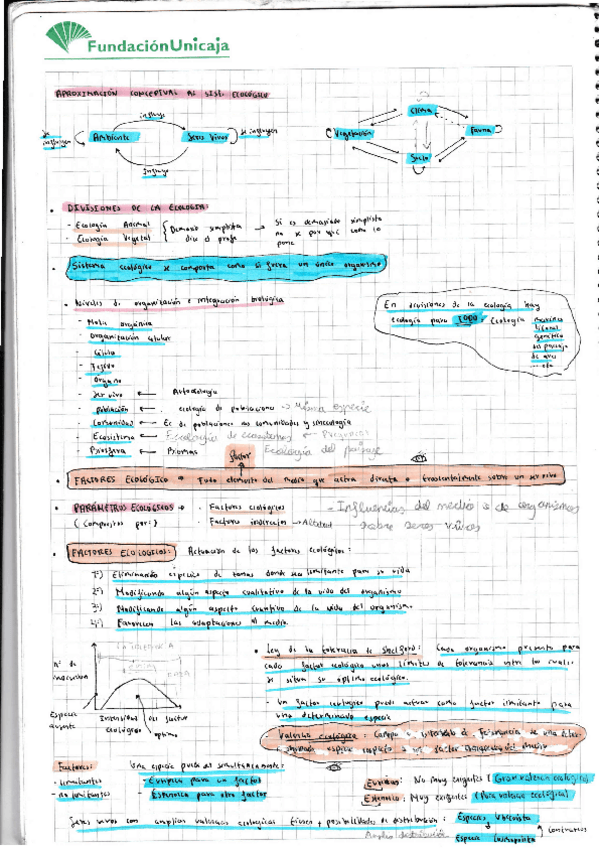 FundaciónUnicaja
APROXIMACIÓN CONCEPTUAL AL SIST. ECOLÓGICO
influye
Se influyen
Ambiente
Seres vivos
Se influyen
Influye
Clima
Vegetación
Fauna
Suelo
DIVISIONES DE LA ECOLOGIA:
- Ecología Animal
- Ecología Vegetal
Demasiado simplista
dice el profe
Si es demasiado simplista
no se por que como lo
pone
Sistema ecológico se comporta como si fuera un único organismo
Niveles de organización e integración biológica
En divisiones de la ecología hay
ecología para TODO: Ecología
del paisaje
de aves
... etc
- Mole orgánica
- Organización celular
- Célula
- Tejido
- Organo
- Ser vivo ← Autoecología
- Población ← ecología de poblaciones → Misma especie
- Comunidad ← Ec de poblaciones no comunidades y sinecología
- Ecosistema ← Ecología de ecosistemas ←
- Biosfera ← Biomas Ecología del paisaje
factor
FACTORES ECOLÓGICO → Todo elemento del medio que actua directa o sobre un ser vivo
PARÁMETROS ECOLÓGICOS → · Factores ecológicos - Influencias del medio o de organismos
(Compuestos por:) · Factores indirectos → Altitud sobre seres vivos
FACTORES ECOLOGICOS: Actuación de los factores ecológicos:
1º) Eliminando especies de zonas donde sea limitante para su vida
2º) Modificando algún aspecto cualitativo de la vida del organismo
3º) Modificando algún aspecto cuantivo de la vida del organismo.
4º) Favorecen las adaptaciones al medio.
Nº de individuos
Especie ausente
Intensidad del factor ecológico
óptimo
Ley de la tolerancia de Shelford: Cada organismo presenta para
cada factor ecológico unos límites de tolerancia entre los cuales
se situa su óptimo ecológico.
- Un factor ecológico puede actuar como factor limitante para
una determinada especie
- Valencia ecológica: Campo o intervalo de tolerancia de una deter-
minada especie respecto a un factor cualquiera del medio
Factores:
- Limitantes
- no limitantes
Una especie puede ser simultáneamente:
- Eurioica para un factor
- Estenoica para otro factor
Eurioico: No muy exigentes (Gran valencia ecológica)
Estenoico: Muy exigentes (Poca valencia ecológica)
Seres vivos con amplias valencias ecologicas tienen + posibilidades de distribución: Especies
Amplia distribución Especie Cosmopolita
Contrarios